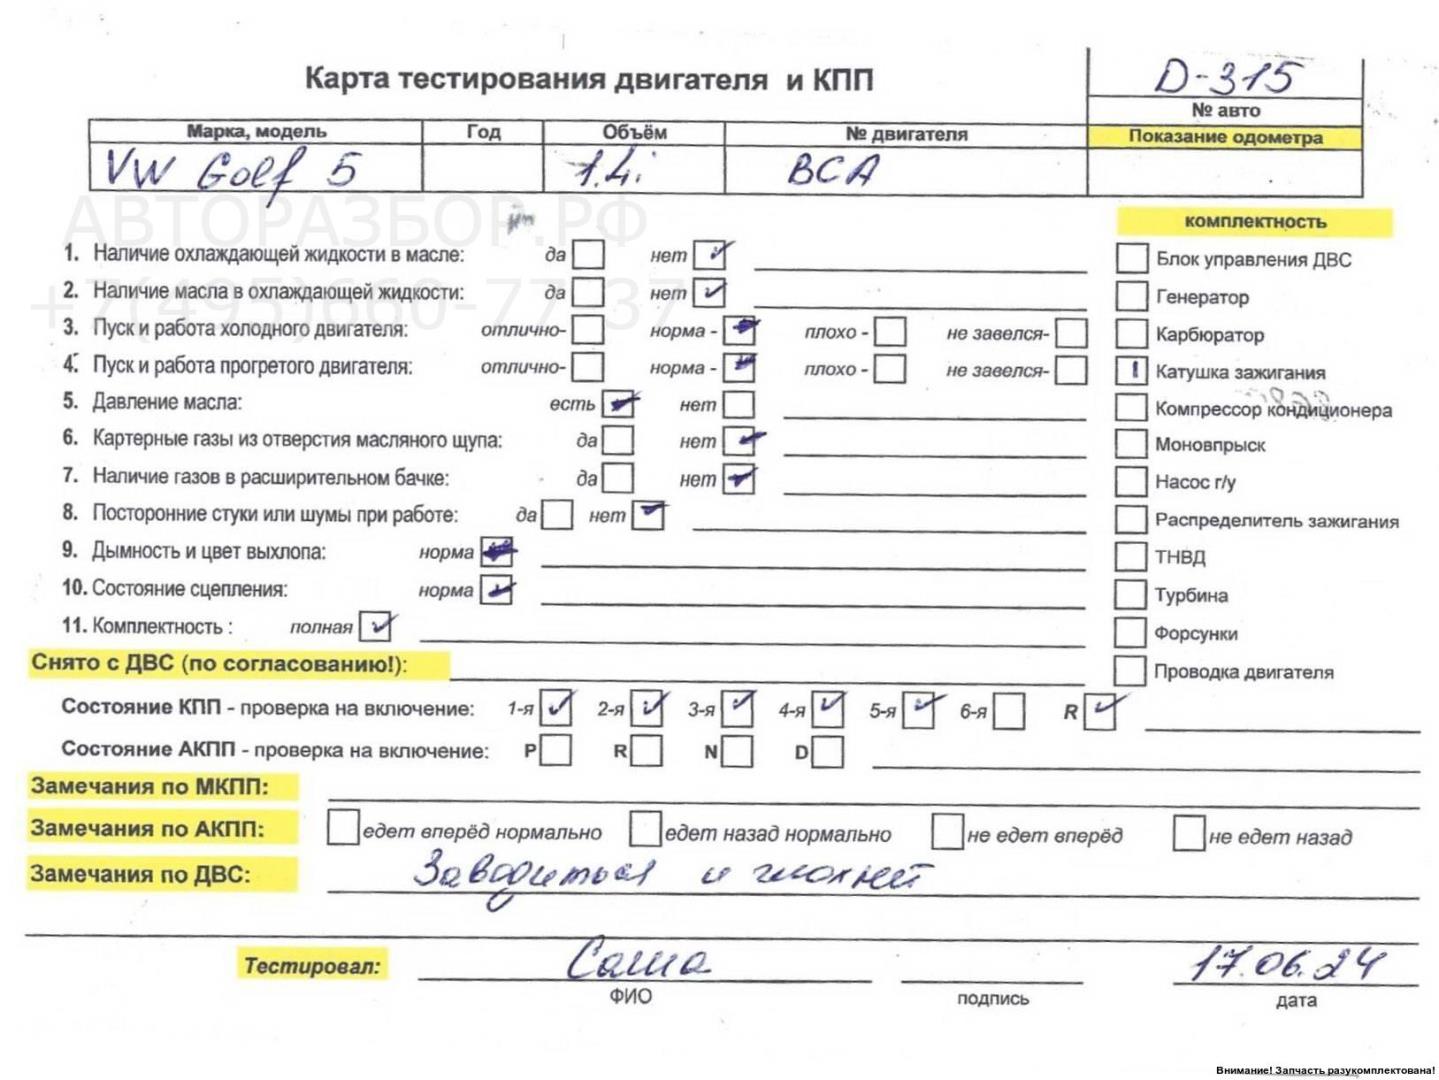 Карта тестирования двигателя и КПП
D-315
№ авто
Марка, модель Год Объём № двигателя Показание одометра
VW Golf 5 1.4i BCA
АВТОРАЗБОР.РФ
+7(495)660-77-37
комплектность
1. Наличие охлаждающей жидкости в масле: да нет
Блок управления ДВС
2. Наличие масла в охлаждающей жидкости: да нет
Генератор
3. Пуск и работа холодного двигателя: отлично- норма - плохо - не завелся-
Карбюратор
4. Пуск и работа прогретого двигателя: отлично- норма - плохо - не завелся-
Катушка зажигания
5. Давление масла: есть нет
Компрессор кондиционера
6. Картерные газы из отверстия масляного щупа: да нет
Моновпрыск
7. Наличие газов в расширительном бачке: да нет
Насос г/у
8. Посторонние стуки или шумы при работе: да нет
Распределитель зажигания
9. Дымность и цвет выхлопа: норма
ТНВД
10. Состояние сцепления: норма
Турбина
11. Комплектность : полная
Форсунки
Снято с ДВС (по согласованию!):
Проводка двигателя
Состояние КПП - проверка на включение: 1-я 2-я 3-я 4-я 5-я 6-я R
Состояние АКПП - проверка на включение: P R N D
Замечания по МКПП:
Замечания по АКПП: едет вперёд нормально едет назад нормально не едет вперёд не едет назад
Замечания по ДВС: Заводиться и глохнет
Тестировал: Саша 17.06.24
ФИО подпись дата
Внимание! Запчасть разукомплектована!